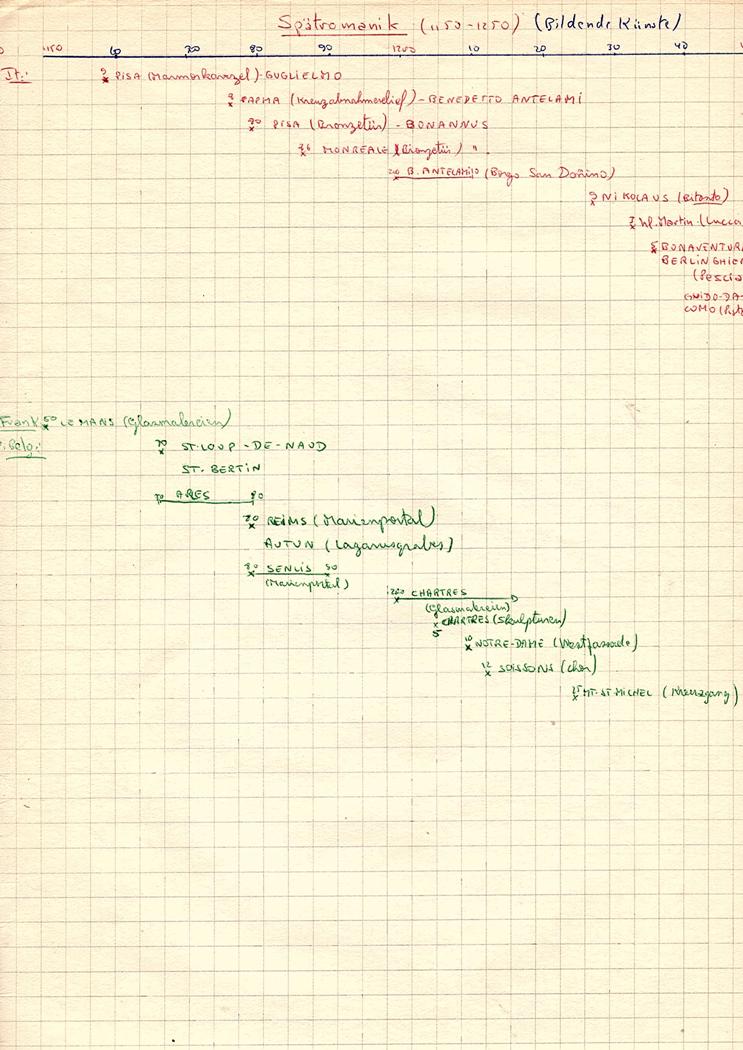 Spätromanik (1150-1250) (Bildende Künste)
1150 60 70 80 90 1200 10 20 30 40
It.:
9 PISA (Marmorkanzel)-GUGLIELMO
PARMA (Kreuzabnahmerelief)-BENEDETTO ANTELAMI
80 PISA (Bronzetür) - BONANNUS
86 MONREALE (Bronzetür) "
B. ANTELAMI (Borgo San Donino)
9 NIKOLAUS (Bitonto)
Hl. Martin (Lucca
5 BONAVENTURA
BERLINGHIER
(Pescia
GUIDO-DA-
COMO (Pist
Frank 50 LE MANS (Glasmalereien)
Belg.:
70 ST-LOUP-DE-NAUD
ST. BERTIN
70 ARES 80
80 REIMS (Marienportal)
AUTUN (Lazarusgrabes)
80 SENLIS 90
(Marienportal)
1200 CHARTRES
(Glasmalereien)
CHARTRES (Skulpturen)
5
10 NOTRE-DAME (Westfassade)
12 SOISSONS (Chor)
25 MT-ST-MICHEL (Kreuzgang)